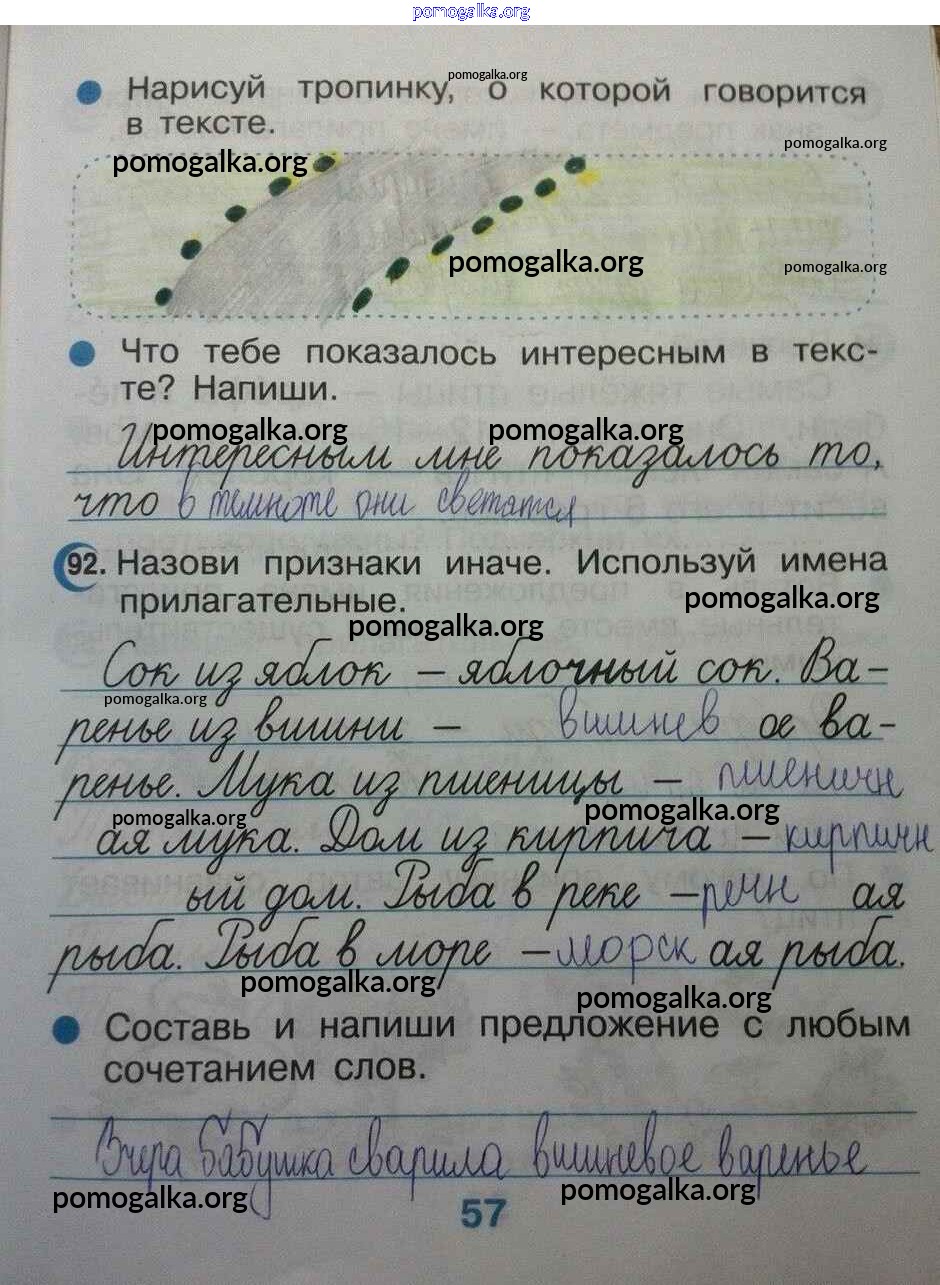 pomogalka.org
pomogalka.org
Нарисуй тропинку, о которой говорится
в тексте.
pomogalka.org
pomogalka.org
pomogalka.org
pomogalka.org
Что тебе показалось интересным в текс-
те? Напиши.
pomogalka.org pomogalka.org
Интересным мне показалось то,
что в темноте они светатся
92. Назови признаки иначе. Используй имена
pomogalka.org
прилагательные.
pomogalka.org
Сок из яблок – яблочный сок. Ва-
pomogalka.org
ренье из вишни – вишнев ое ва-
ренье. Мука из пшеницы – пшеничн
pomogalka.org pomogalka.org
ая мука. Дом из кирпича – кирпичн
ый дом. Рыба в реке – речн ая
рыба. Рыба в море – морск ая рыба.
pomogalka.org
pomogalka.org
Составь и напиши предложение с любым
сочетанием слов.
Вчера бабушка сварила вишневое варенье
pomogalka.org pomogalka.org
57